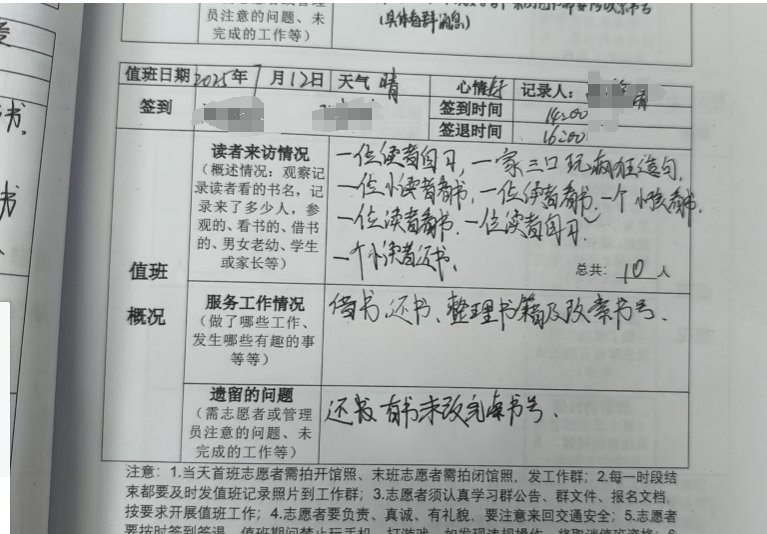 员注意的问题、未
完成的工作等）
(具体看群消息)
值班日期 2025年7月12日 天气 晴 心情 好 记录人：
签到 签到时间 14:00
签退时间 16:00
书
书
值班
概况
读者来访情况
（概述情况：观察记
录读者看的书名，记
录来了多少人，参
观的、看书的、借书
的、男女老幼、学生
或家长等）
一位读者自习，一家三口玩疯狂造句，
一位小读者看书，一位读者看书，一个小孩看书，
一位读者看书，一位读者自习，
一个小读者还书。
总共：10人
服务工作情况
（做了哪些工作、
发生哪些有趣的事
等等）
借书、还书、整理书籍及改索书号。
遗留的问题
（需志愿者或管理
员注意的问题、未
完成的工作等）
还有书未改完索书号。
注意：1.当天首班志愿者需拍开馆照、末班志愿者需拍闭馆照，发工作群；2.每一时段结
束都要及时发值班记录照片到工作群；3.志愿者须认真学习群公告、群文件、报名文档，
按要求开展值班工作；4.志愿者要负责、真诚、有礼貌，要注意来回交通安全；5.志愿者
要按时签到签退，值班期间禁止玩手机、打游戏，如发现违规操作，将取消值班资格；6